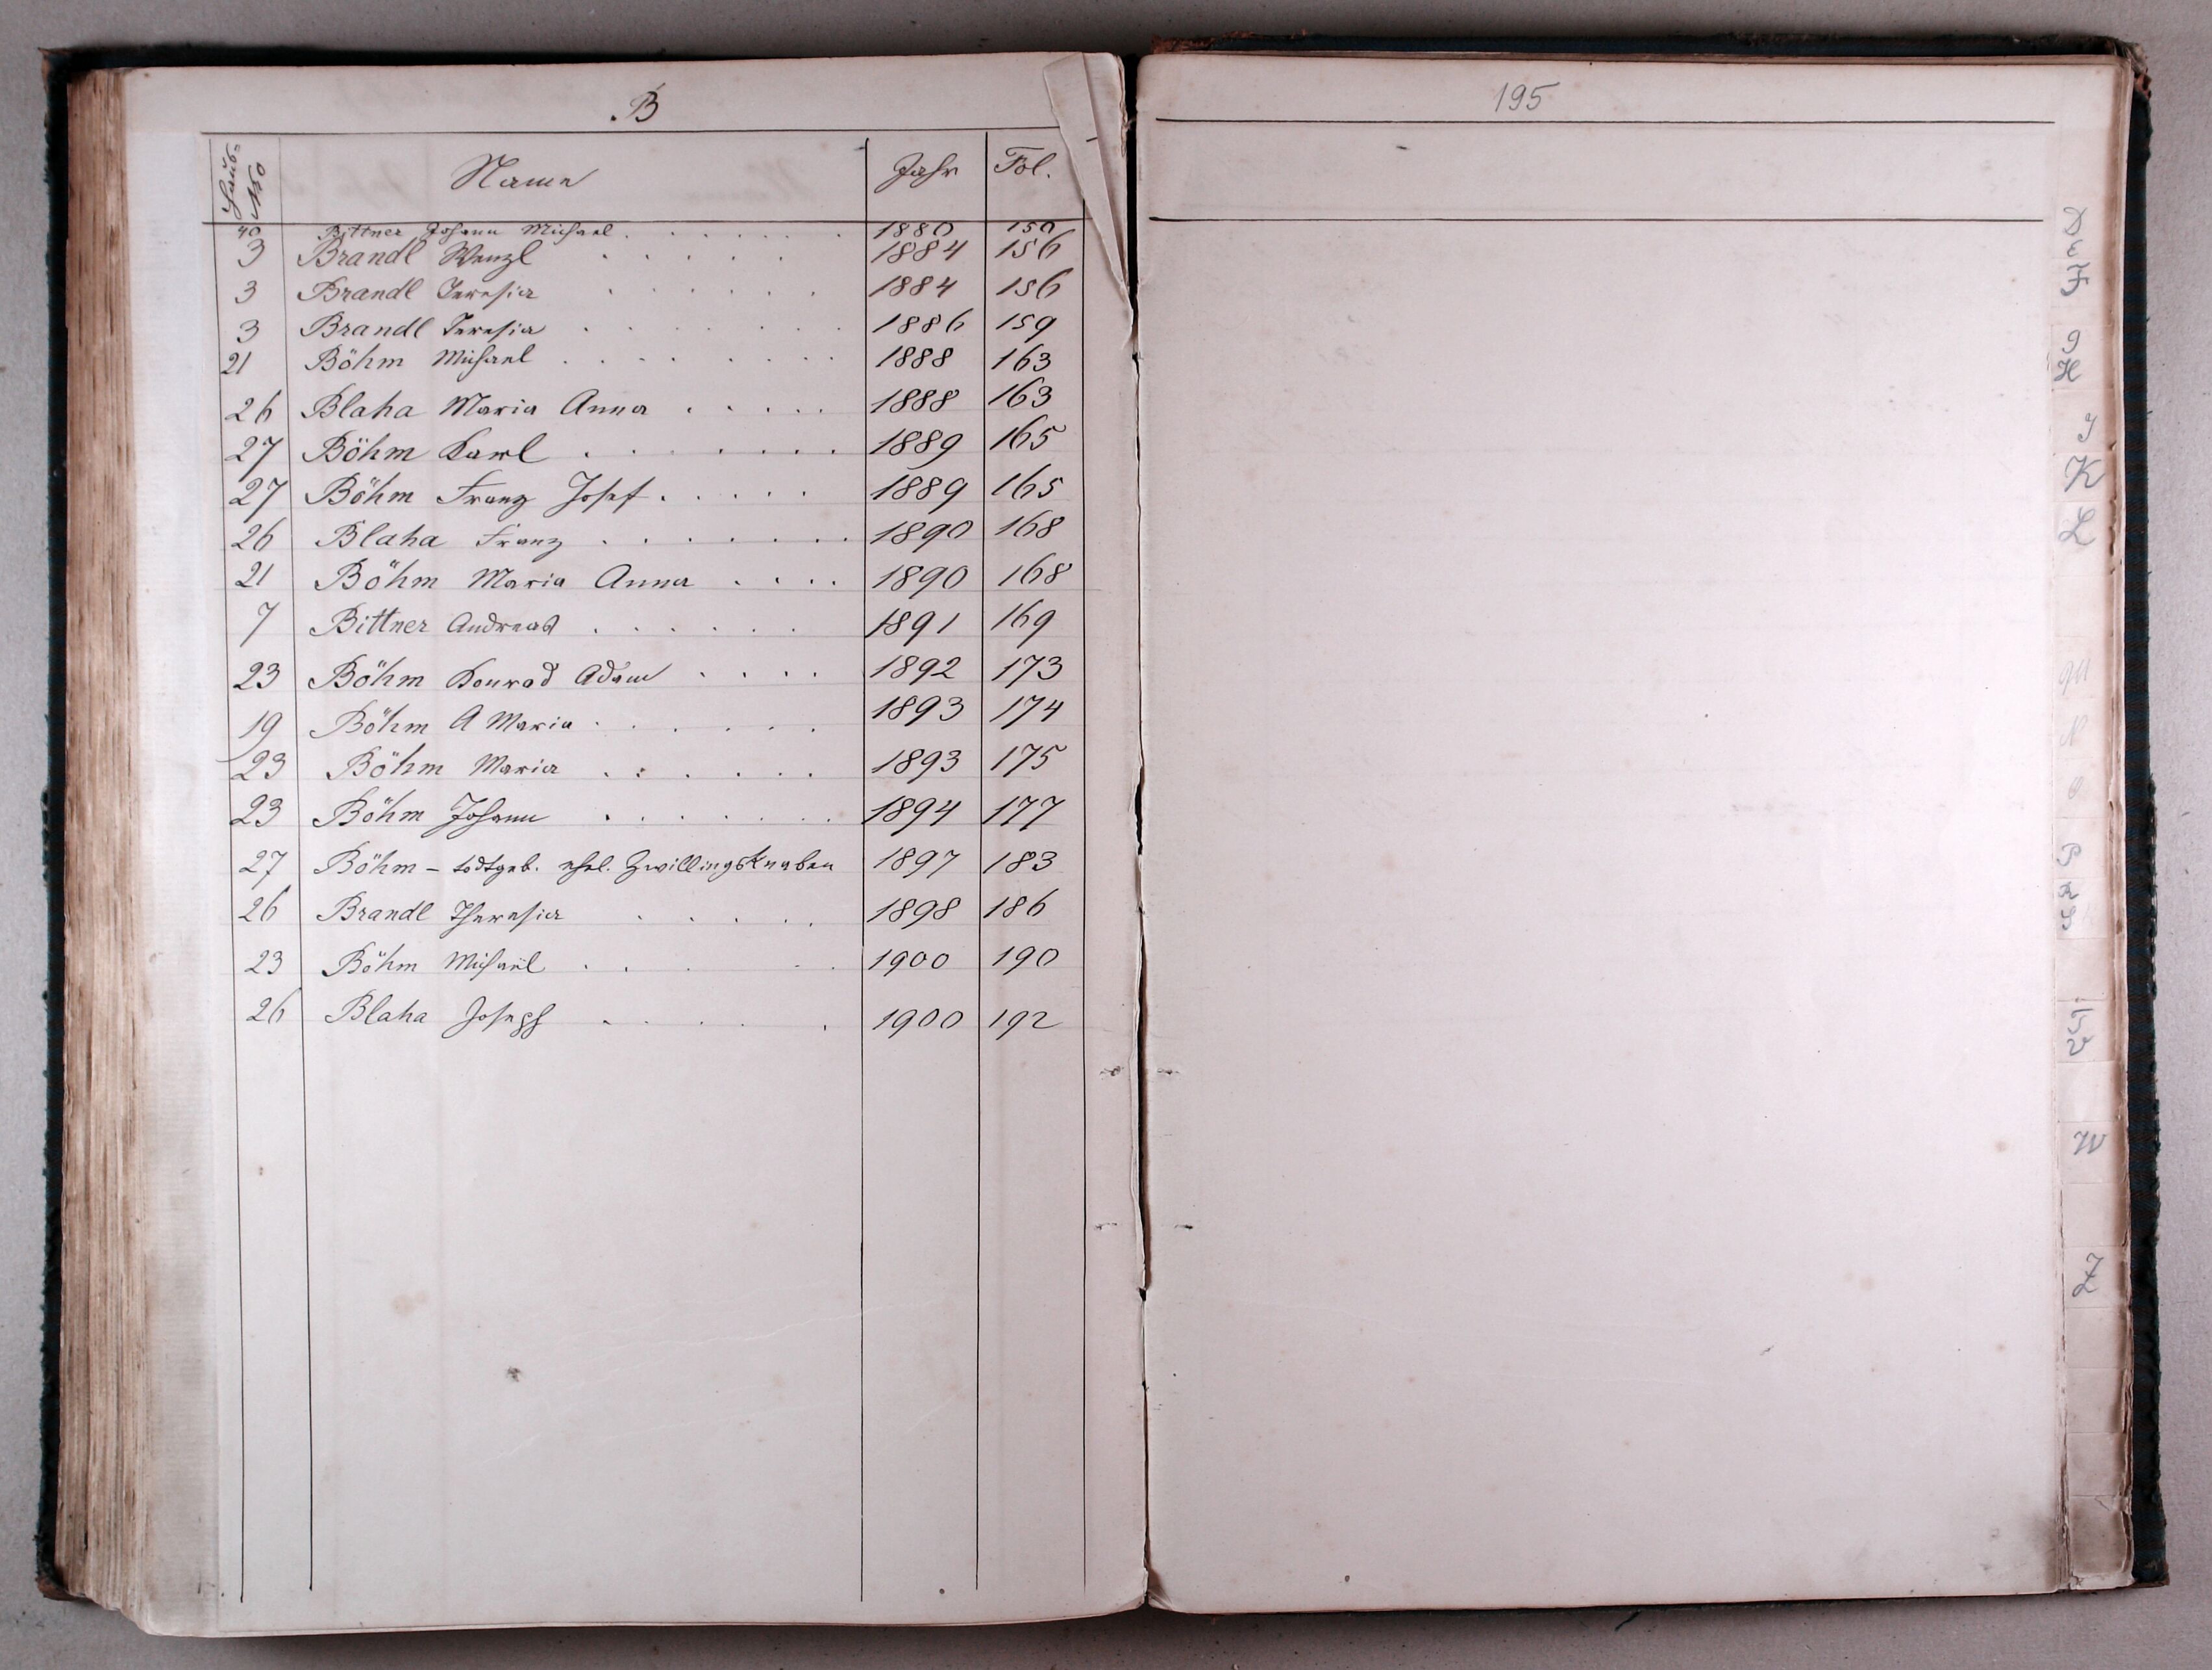 B
Haus- Nro Name Jahr Fol.
40 Bittner Johann Michael 1880 150
3 Brandl Wenzl 1884 156
3 Brandl Teresia 1884 156
3 Brandl Teresia 1886 159
21 Böhm Michael 1888 163
26 Blaha Maria Anna 1888 163
27 Böhm Karl 1889 165
27 Böhm Franz Josef 1889 165
26 Blaha Franz 1890 168
21 Böhm Maria Anna 1890 168
7 Bittner Andreas 1891 169
23 Böhm Konrad Adam 1892 173
19 Böhm A Maria 1893 174
23 Böhm Maria 1893 175
23 Böhm Johann 1894 177
27 Böhm – todtgeb. ehel. Zwillingsknaben 1897 183
26 Brandl Theresia 1898 186
23 Böhm Michael 1900 190
26 Blaha Joseph 1900 192
195
D
E
F
G
H
J
K
L
M
N
O
P
R
S
V
W
Z